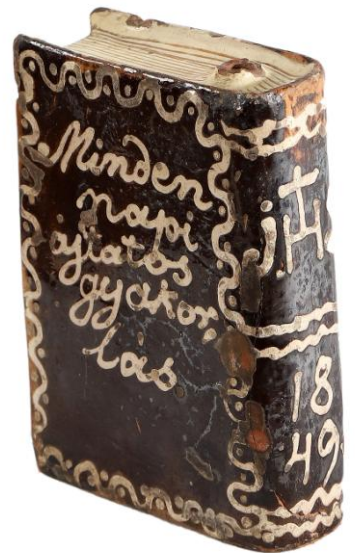 Minden
napi
ájtatos
gyakor
lás
JH
18
49